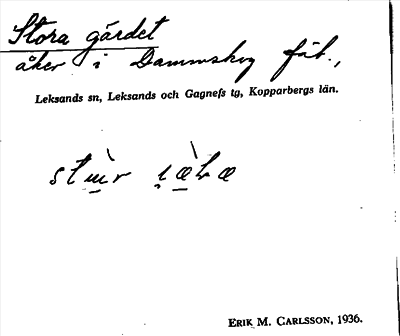 Stora gärdet
åker i Dammskog fäb.,
Leksands sn, Leksands och Gagnefs tg, Kopparbergs län.
ERIK M. CARLSSON, 1936.